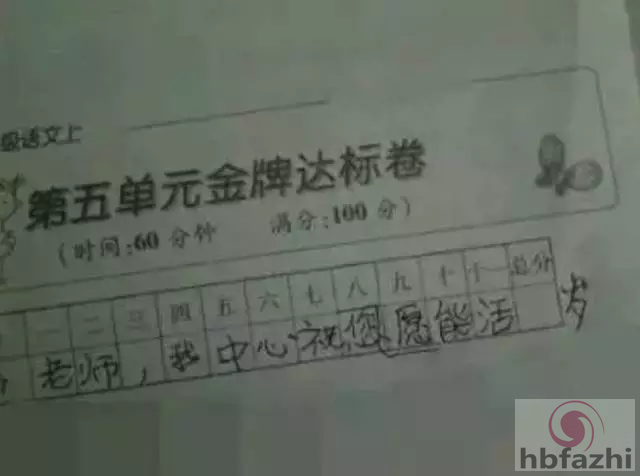 级语文上
第五单元金牌达标卷
(时间:60 分钟 满分:100 分)
一 二 三 四 五 六 七 八 九 十 十一 总分
老师,我中心祝您愿能活 岁
hbfazhi